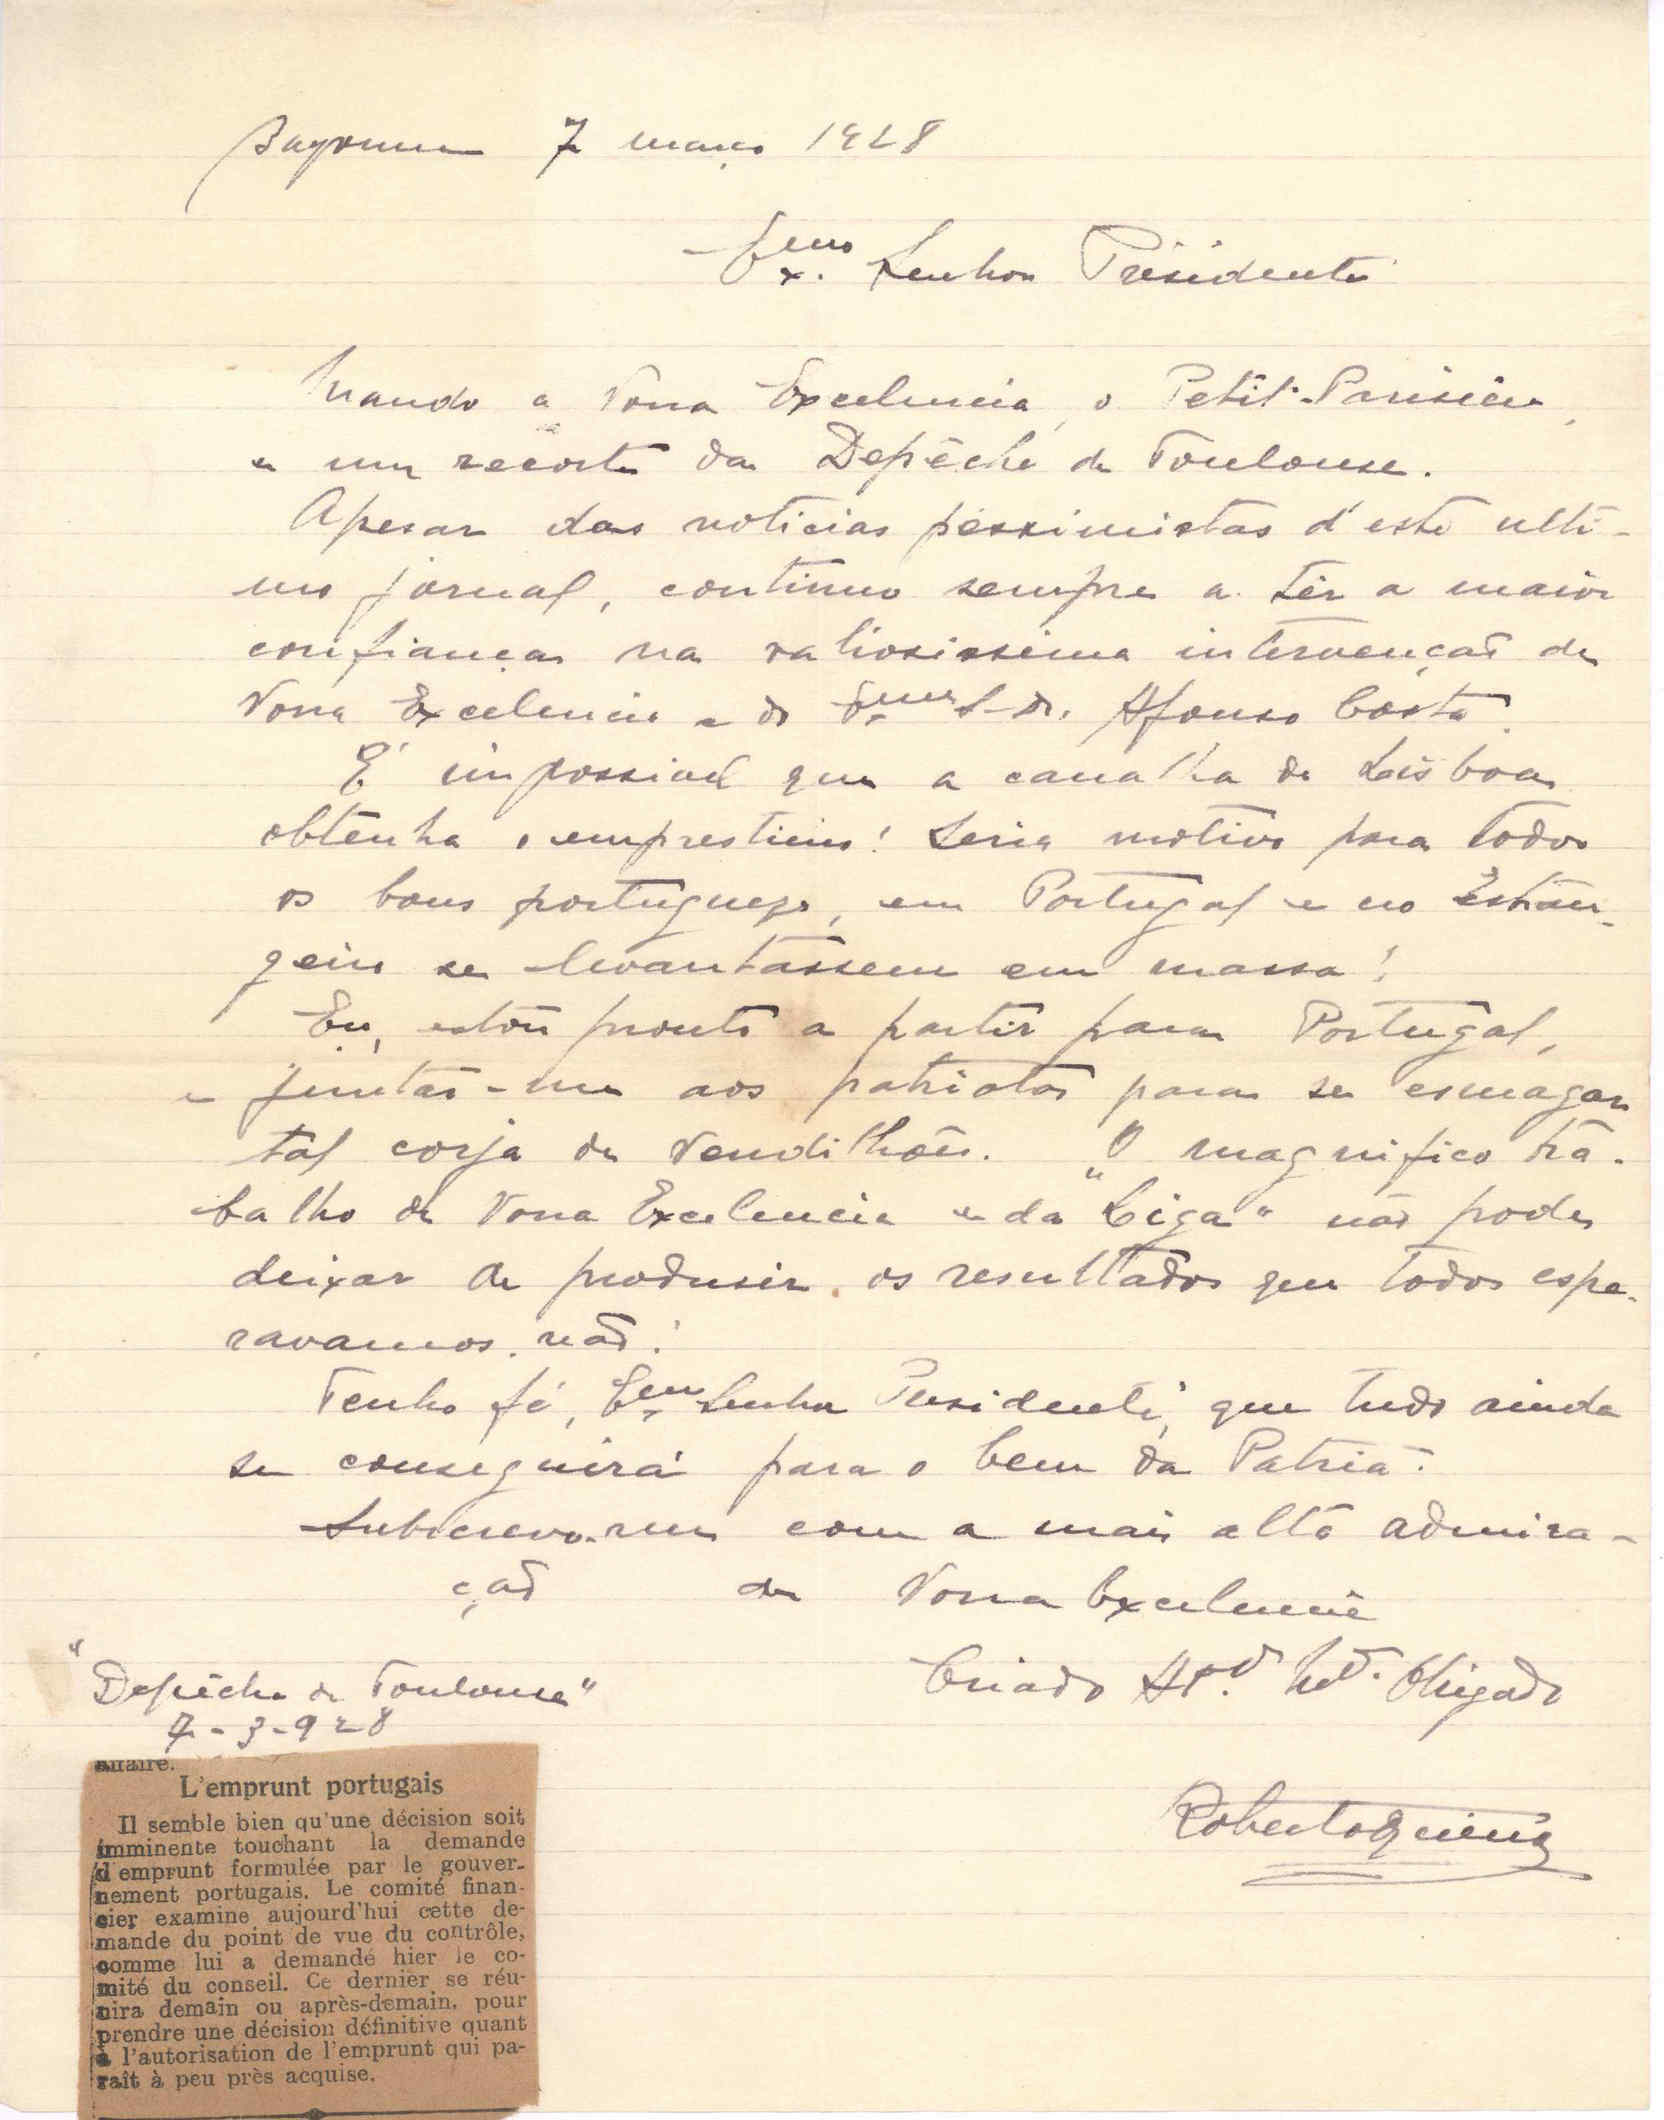 Bayonne 7 março 1928
Ex.mo Senhor Presidente
Mando a Vossa Excelencia, o Petit-Parisien,
e um recorte da Depêche de Toulouse.
Apesar das noticias pessimistas d'este ulti-
mo jornal, continuo sempre a ter a maior
confiança na valiosissima intervenção de
Vossa Excelencia e do Exmo Sr. Dr. Afonso Costa.
É impossivel que a canalha de Lisboa
obtenha o emprestimo! Seria motivo para todos
os bons portuguezes, em Portugal e no Estran-
geiro se levantassem em massa!
Eu, estou pronto a partir para Portugal,
e juntar-me aos patriotas para se esmagar
tal corja de vendilhões. O magnifico tra-
balho de Vossa Excelencia e da "Liga" não pode
deixar de produsir os resultados que todos espe-
ravamos. não!
Tenho fé, Exmo Senhor Presidente, que tudo ainda
se conseguirá para o bem da Patria.
Subscrevo-me com a mais alta admira-
ção de Vossa Excelencia
Criado At.º Obrigado
"Depêche de Toulouse"
7-3-928
L'emprunt portugais
Il semble bien qu'une décision soit
imminente touchant la demande
d'emprunt formulée par le gouver-
nement portugais. Le comité finan-
cier examine aujourd'hui cette de-
mande du point de vue du contrôle,
comme lui a demandé hier le co-
mité du conseil. Ce dernier se réu-
nira demain ou après-demain, pour
prendre une décision définitive quant
à l'autorisation de l'emprunt qui pa-
raît à peu près acquise.
Roberto